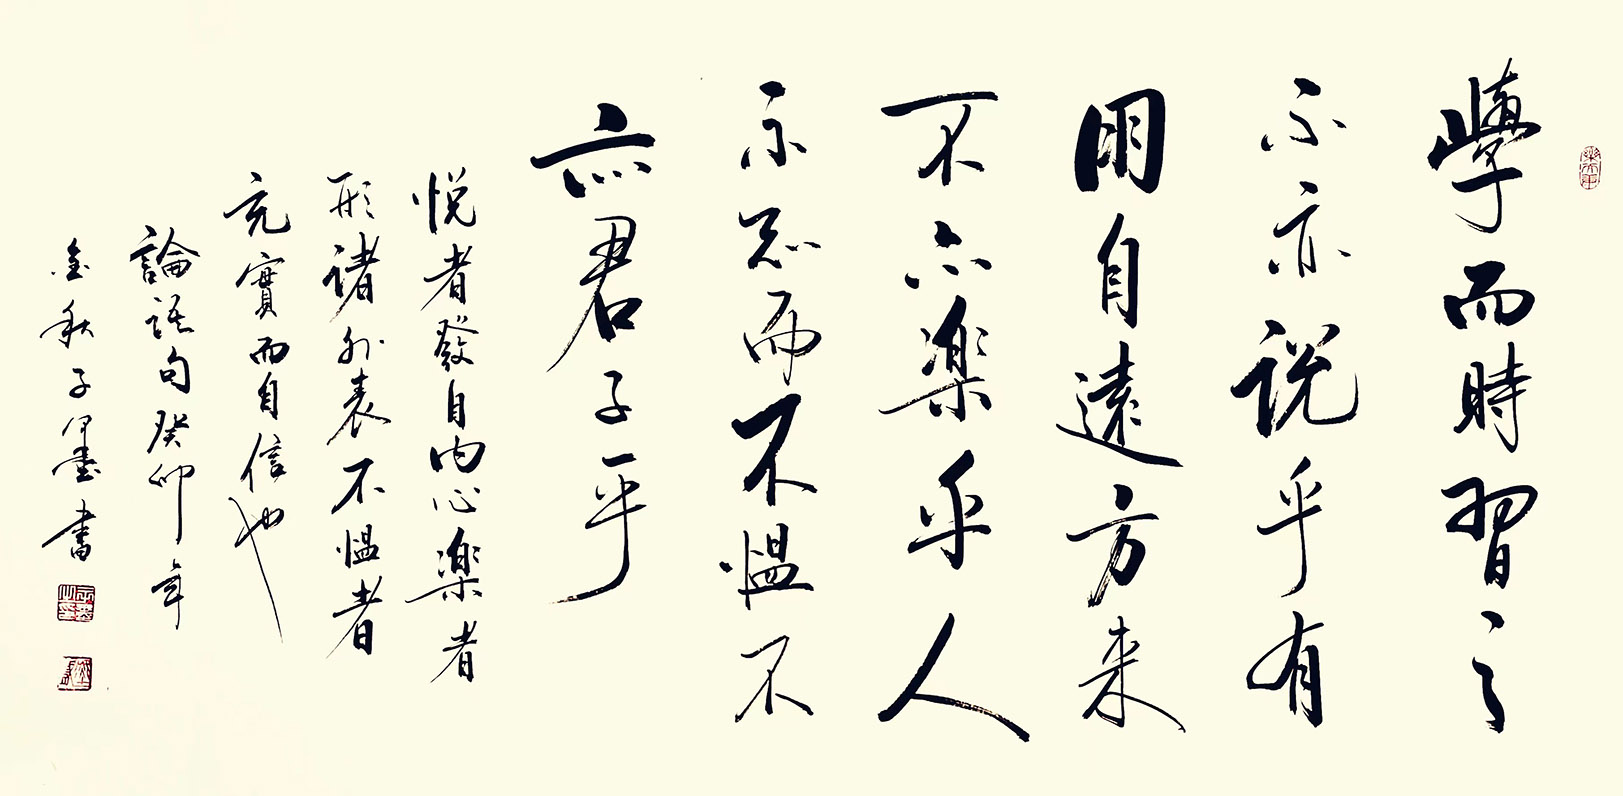 學而時習之
不亦説乎有
朋自遠方来
不亦楽乎人
不知而不愠不
亦君子乎
悦者發自内心楽者
形諸外表不愠者
充實而自信也
論語句癸卯年
金秋子墨書